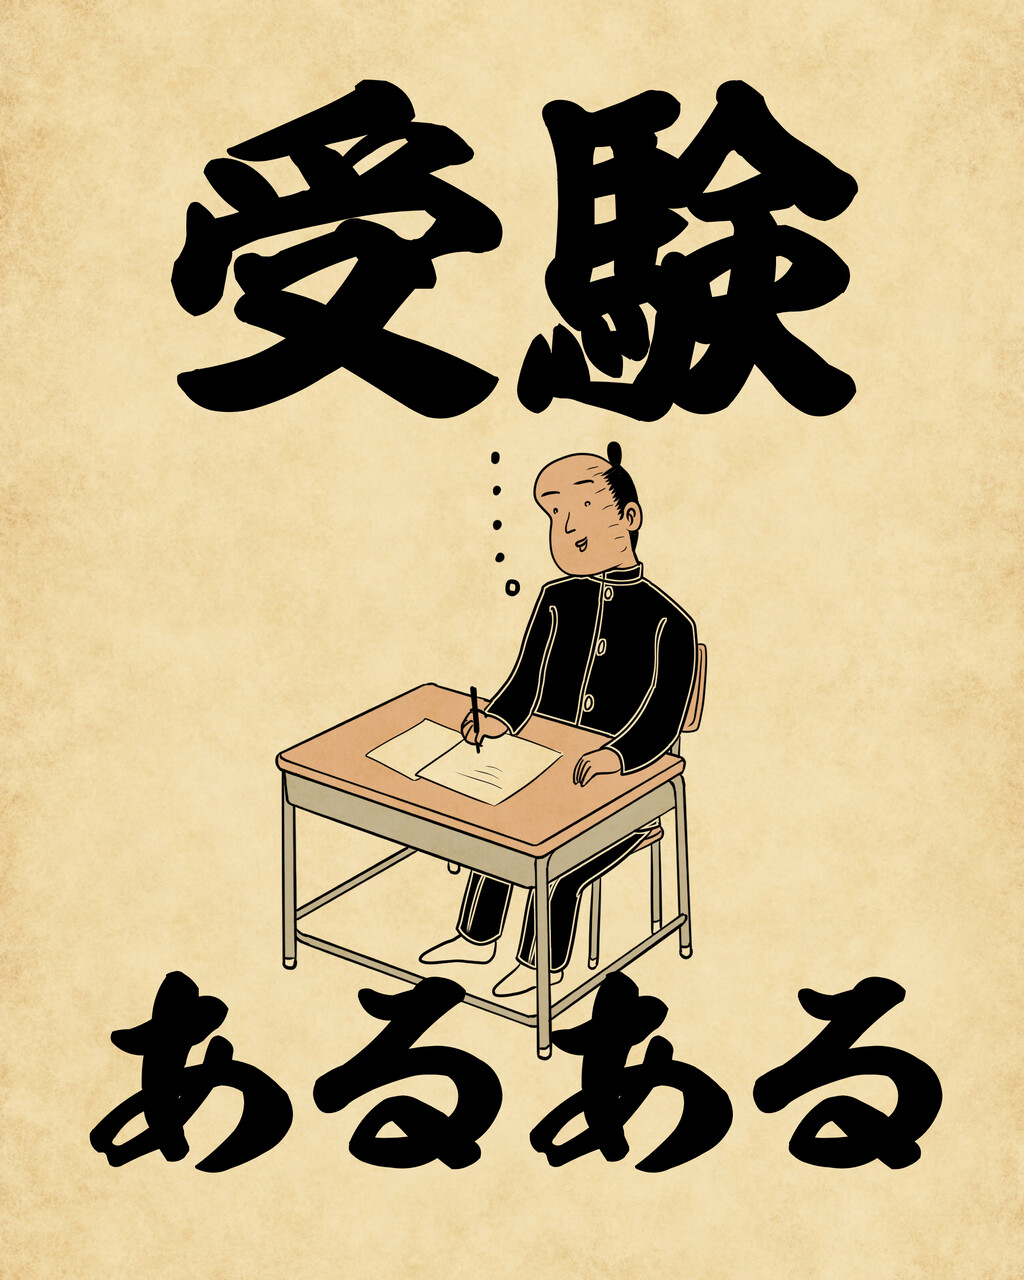 受験
あるある